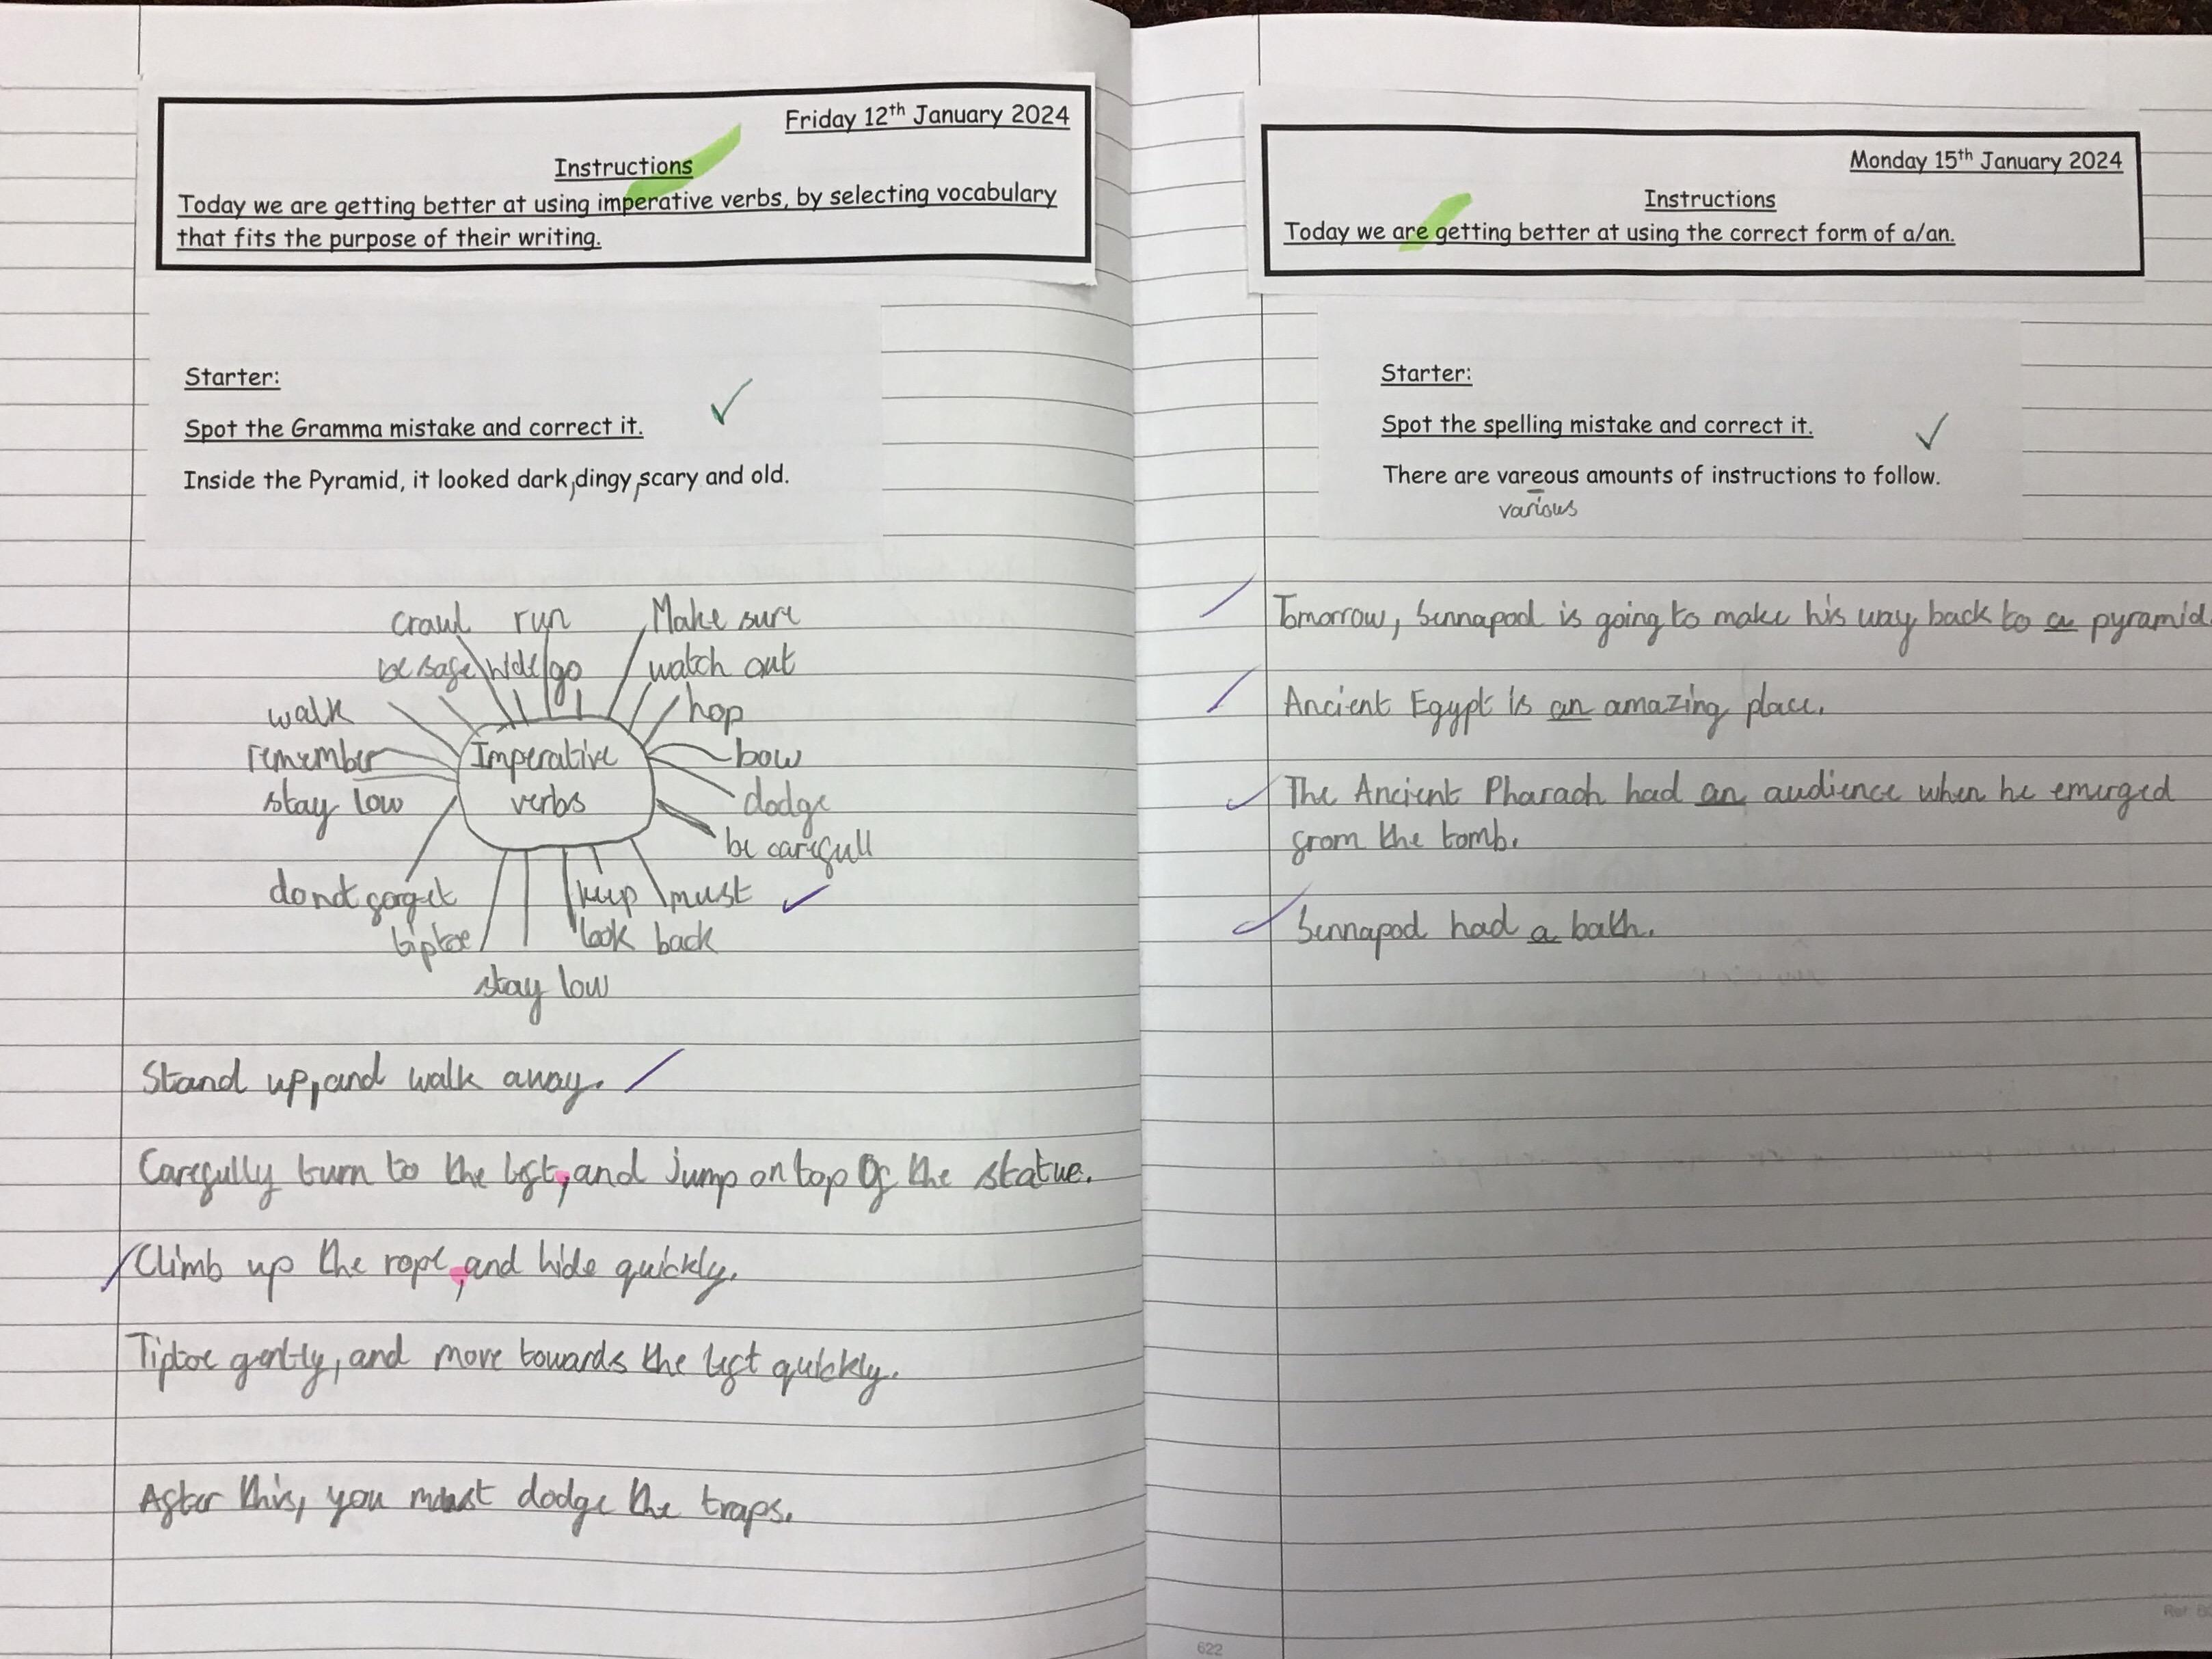 Friday 12th January 2024
Instructions
Today we are getting better at using imperative verbs, by selecting vocabulary
that fits the purpose of their writing.
Starter:
Spot the Gramma mistake and correct it.
Inside the Pyramid, it looked dark, dingy, scary and old.
crawl run Make sure
be safe hide go watch out
walk hop
remember Imperative bow
stay low verbs dodge
be carefull
do not forget keep must
tiptoe look back
stay low
Stand up, and walk away.
Carefully turn to the left, and jump on top of the statue.
Climb up the rope, and hide quickly.
Tiptoe gently, and move towards the left quickly.
After this, you must dodge the traps.
Monday 15th January 2024
Instructions
Today we are getting better at using the correct form of a/an.
Starter:
Spot the spelling mistake and correct it.
There are vareous amounts of instructions to follow.
various
Tomorrow, Sennapod is going to make his way back to a pyramid.
Ancient Egypt is an amazing place.
The Ancient Pharaoh had an audience when he emerged
from the tomb.
Sennapod had a bath.
622